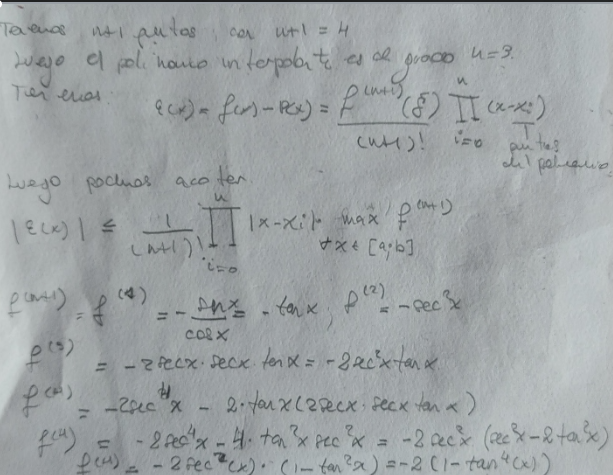 Tenemos n+1 puntos, con n+1 = 4
Luego el polinomio interpolante es de grado n=3.
Tenemos:
ε(x) = f(x) - P(x) = f^(n+1)(ξ) / (n+1)! ∏_{i=0}^{n} (x-xi)
puntos
del polinomio.
Luego podemos acotar
|ε(x)| ≤ 1/(n+1)! ∏_{i=0}^{n} |x-xi| · max f^(n+1)
∀x ∈ [a,b]
f^(n+1) = f^(4) = - sen x / cos x = - tan x ; f^(2) = - sec²x
f^(3) = -2 sec x · sec x · tan x = -2 sec²x tan x
= -2sec⁴x - 2·tan x (2sec x · sec x tan x)
f^(4) = -2sec⁴x - 4·tan²x sec²x = -2 sec²x (sec²x - 2 tan²x)
f^(4) = -2 sec²(x) · (1 - tan²x) = -2 (1 - tan⁴(x))